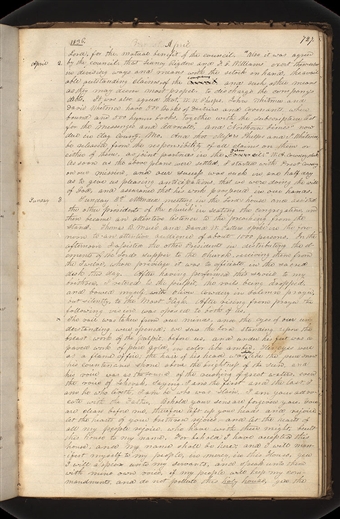 1836
April
727
April 2.
herds, for the mutual benefit of the concern. Also it was agreed
by the councils that Henry Rigdon and F. G. Williams exert themselves
in devising ways and means with the stock in hand, the avail-
able outstanding claims of the and such other means
as they may deem most proper to discharge the company's
debts. It was also agreed, that W. W. Phelps, John Whitmer and
David Whitmer have 500 books of Doctrine and Covenants, when
bound and 500 hymn books, together with the subscription list
for the Messenger and Advocate and Northern Times now
due in Clay County, Mo. And that Messrs. Phelps and Whitmer
be released from the responsibility of all claims on them or
either of them, as joint partners in the firm
As soon as the above plans were settled, I started with
on our mission, and our success was such in one half day
as to give us pleasing anticipations that we were doing the will
of God, and assurance that his work prospered in our hands.
Sunday 3.
Sunday 3d. Attended meeting in the Lord's house and assisted
the other Presidents of the church in seating the congregation and
then became an attentive listener to the preaching from the
stand. Thomas B. Marsh and David W. Patten spoke in the fore-
noon to an attentive audience of about 1000 persons. In the
afternoon I assisted the other Presidents in distributing the el-
ements of the Lord's supper to the church, receiving them from
the Twelve, whose privilege it was to officiate in the sacred
desk this day. After having performed this service to my
brethren, I retired to the pulpit, the veils being dropped,
and bowed myself with Oliver Cowdery in solemn prayer
but silently, to the Most High. After rising from prayer the
following vision was opened to both of us.
The veil was taken from our minds, and the eyes of our un-
derstanding was opened; we saw the Lord standing upon the
breast work of the pulpit before us, and under his feet was a
paved work of pure gold, in color like amber. His eyes were
as a flame of fire; the hair of his head was white like the pure snow;
his countenance shone above the brightness of the sun, and
his voice was as the sound of the rushing of great waters, even
the voice of Jehovah, saying, I am the first and the last, I
am he who liveth, I am he who was slain, I am your advo-
cate with the Father. Behold your sins are forgiven you, you
are clean before me, therefore lift up your heads and rejoice,
let the hearts of your brethren rejoice, and let the hearts of
all my people rejoice who have with their might, built
this house to my name. For behold I have accepted this
house, and my name shall be here, and I will man-
ifest myself to my people, in mercy, in this House, yea
I will appear unto my servants, and speak unto them
with mine own voice, if my people will keep my com-
mandments, and do not pollute this holy house. Yea the